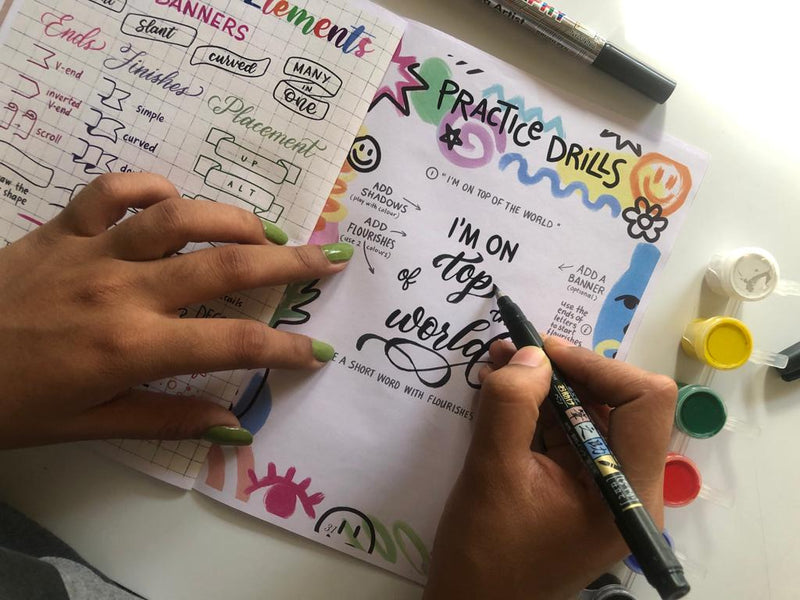 Elements
BANNERS
Ends
V-end
inverted
V-end
scroll
draw the
shape
Slant
curved
MANY
IN
ONE
Finishes
simple
curved
Placement
UP
ALT
PRACTICE DRILLS
① "I'M ON TOP OF THE WORLD"
ADD
SHADOWS
(play with colour)
ADD
FLOURISHES
(use 2 colours)
I'M ON
top
of
world
ADD A
BANNER
(optional)
use the
ends of
letters
to start
flourishes
①
A SHORT WORD WITH FLOURISHES
31